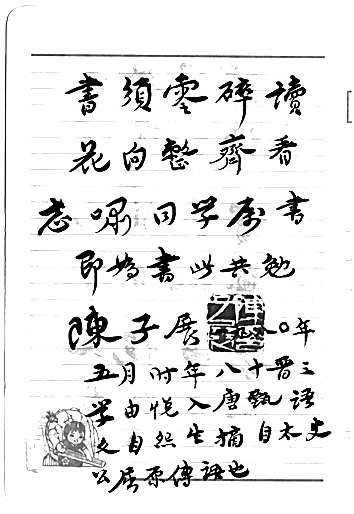 書須零碎讀
花向整齊看
志啸同学属書
即为書此共勉
陳子展 八〇年
五月时年八十晋三
学由悦入唐甄語
文自怨生摘自太史
公屈原傳語也